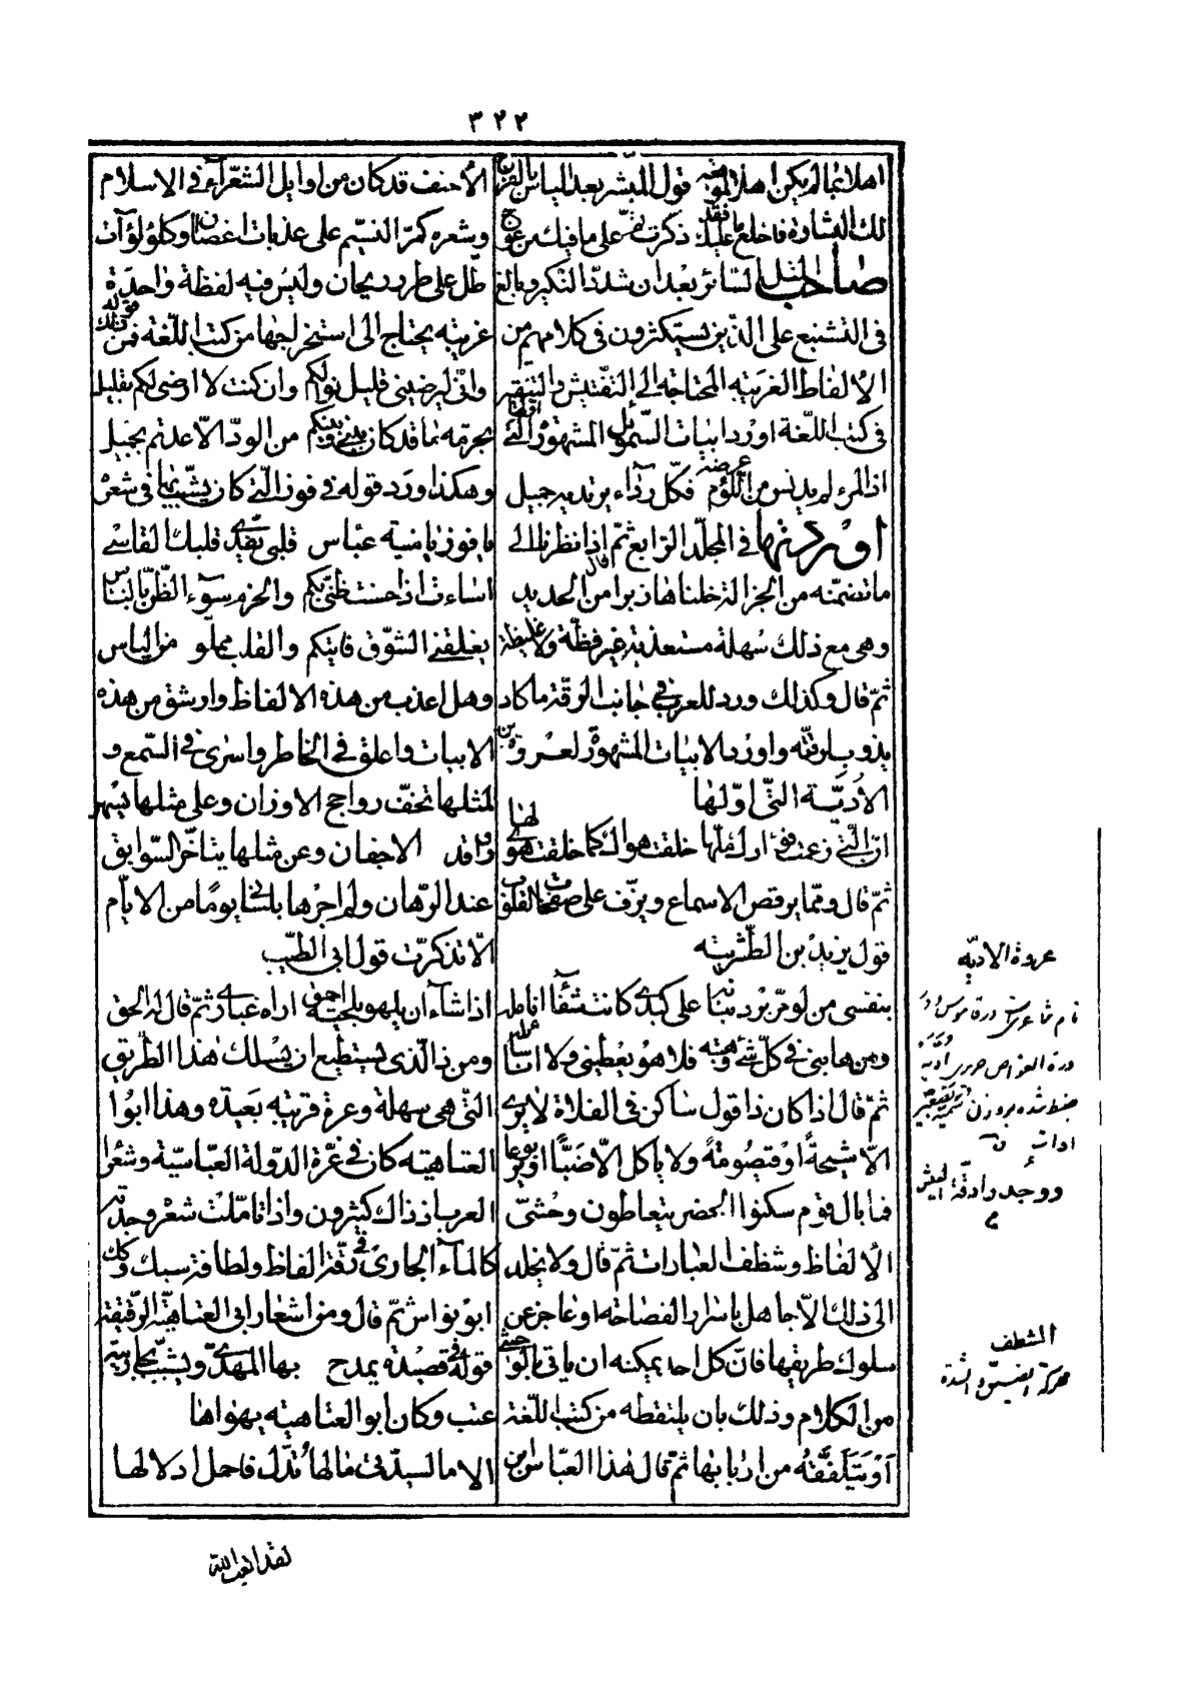 ٣٢٢
اهلا بما لم يكن اهلا لموقعه قول المبشر بعد الياس بالفرج
لك البشارة فاخلع ما عليك فقد ذكرت ثم على ما فيك من عوج
صاحب المثل السائر بعد ان شدد النكير وبالغ
فى التشنيع على الذين يستكثرون فى كلامهم من
الالفاظ الغريبة المحتاجة الى التفتيش والتنقير
فى كتب اللغة اورد ابيات السموئل المشهورة التى اولها
اذا المرء لم يدنس من اللؤم عرضه فكل رداء يرتديه جميل
اوردتها فى المجلد الرابع ثم قال اذا نظرنا الى
ما تضمنته من الجزالة خلناها زبرا من الحديد
وهى مع ذلك سهلة مستعذبة غير فظة ولا غليظة
ثم قال وكذلك ورد للعرب فى جانب الرقة ما كاد
يذوب لرقته واورد الابيات المشهورة لعروة بن
الادية التى اولها
ان التى زعمت فؤادك ملها خلقت هواك كما خلقت هوى لها
ثم قال ومما يرقص الاسماع ويرف على صفحات القلوب
قول يزيد بن الطثرية
بنفسى من لو مر برد بنانه على كبدى كانت شفاء انامله
ومن هابنى فى كل شئ وهبته فلا هو يعطينى ولا انا سائله
ثم قال اذا كان ذا قول ساكن فى الفلاة لا يرى
الا شيحة او قيصومة ولا ياكل الا ضبا او يربوعا
فما بال قوم سكنوا الحضر يتعاطون وحشى
الالفاظ وشظف العبارات ثم قال ولا يخلد
الى ذلك الا جاهل باسرار الفصاحة او عاجز عن
سلوك طريقها فان كل احد يمكنه ان ياتى بالوحشى
من الكلام وذلك بان يلتقطه من كتب اللغة
او يتلقفه من اربابها ثم قال هذا العباس بن
الاحنف قد كان من اوايل الشعراء فى الاسلام
وشعره كمر النسيم على عذبات اغصان وكلؤلؤات
طل على طرر ريحان وليس فيه لفظة واحدة
غريبة يحتاج الى استخراجها من كتب اللغة فمن ذلك قوله
وانى ليرضينى قليل نوالكم وان كنت لا ارضى لكم بقليل
بحرمة ما قد كان بينى وبينكم من الود الا عدتم بجميل
وهكذا ورد قوله فى فوز التى كان يشبب بها فى شعره
يا فوز يا منية عباس قلبى يفدى قلبك القاسى
اسات اذ احسنت ظنى بكم والحزم سوء الظن بالناس
يقلقنى الشوق فاتيكم والقلب مملو من الياس
وهل اعذب من هذه الالفاظ وارشق من هذه
الابيات واعلق فى الخاطر واسرى فى السمع و
لمثلها تخف رواجح الاوزان وعلى مثلها تسهر
رواقد الاجفان وعن مثلها يتاخر السوابق
عند الرهان ولم اجرها بلسانى يوما من الايام
الا تذكرت قول ابى الطيب
اذا شاء ان يلهو بلحية احمق اراه غبارى ثم قال له الحق
ومن ذا الذى يستطيع ان يسلك هذا الطريق
التى هى سهلة وعرة قريبة بعيدة وهذا ابوا
العتاهية كان فى غرة الدولة العباسية وشعراء
العرب اذ ذاك كثيرون واذا تاملت شعره وجدته
كالماء الجارى فى رقة الفاظ ولطافة سبك وكذلك
ابو نواس ثم قال ومن اشعار ابى العتاهية الرقيقة
قوله فى قصيدة يمدح بها المهدى ويشبب بجاريته
عتب وكان ابو العتاهية يهواها
الا ما لسيدتى ما لها تدل فاحمل ادلالها
عروة الادية
نام شاعريست در قاموس
ضبط شده بر وزن
الشظف
محركة الضيق والشدة
لقد اتعب الله